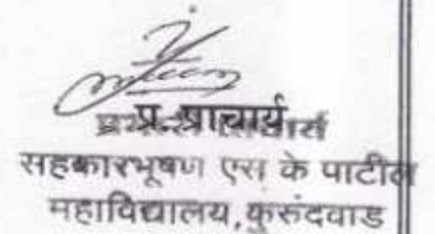 प्र. प्राचार्य
सहकारभूषण एस के पाटील
महाविद्यालय,कुरुंदवाड